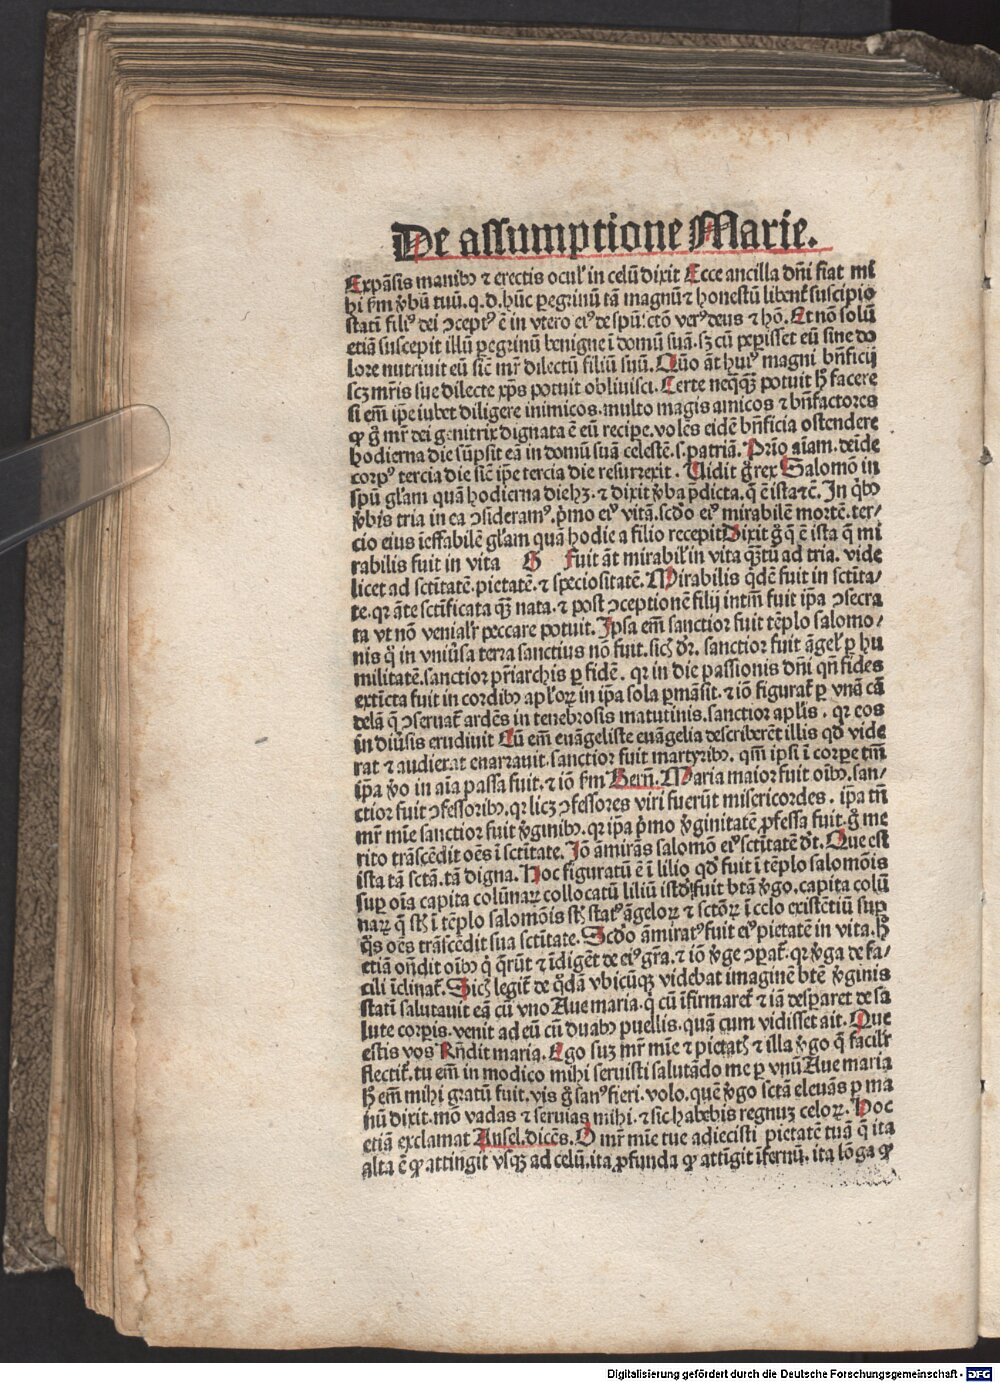 De assumptione Marie.
Expãsis manibꝰ ⁊ erectis ocul' in celũ dixit Ecce ancilla dñi fiat mi
hi ẜm v̓bũ tuũ.q.d.hũc pegrinũ tã magnũ ⁊ honestũ libent̃ suscipio
statĩ fili⁹ dei ↄcept⁹ ẽ in vtero ei⁹ de spũ sctõ ver⁹ deus ⁊ hõ. Et nõ solũ
etiã suscepit illũ pegrinũ benigne ĩ domũ suã.sꝫ cũ peperisset eũ sine do
lore nutriuit eũ sic̃ mr̃ dilectũ filiũ suũ. Quõ ãt hui⁹ magni bñficij
scꝫ mr̃is sue dilecte xp̃s potuit obliuisci. Certe neq̃ꝗ̃ potuit h̃ facere
si em̃ ip̃e iubet diligere inimicos.multo magis amicos ⁊ bñfactores
ꝙ g̊ mr̃ dei genitrix dignata ẽ eũ recipe.volẽs eidẽ bñficia ostendere
hodierna die sũpsit eã in domũ suã celestẽ.s.patriã. Prĩo aĩam.deĩde
corp⁹ tercia die sic̃ ip̃e tercia die resurrexit. Uidit g̊ rex Salomõ in
spũ gl̃am quã hodierna die hꝫ.⁊ dixit v̓ba p̃dicta.q̃ ẽ ista ⁊c̃. In q̊bꝰ
v̓bis tria in ea ↄsideram⁹.p̊mo ei⁹ vitã.scđo ei⁹ mirabilẽ mortẽ.ter/
cio eius ĩeffabilẽ gl̃am quã hodie a filio recepit Dixit g̊ q̃ ẽ ista q̃ mi
rabilis fuit in vita Fuit ãt mirabil' in vita q̃ꝫtũ ad tria. vide
licet ad sctĩtatẽ.pietatẽ.⁊ speciositatẽ. Mirabilis q̃dẽ fuit in sctĩta/
te.qꝛ ãte sctĩficata q̃ꝫ nata.⁊ post ↄceptionẽ filij intm̃ fuit ip̃a ↄsecra
ta vt nõ venialr̃ peccare potuit. Ipsa em̃ sanctior fuit tẽplo salomo/
nis q̊ in vniũsa terra sanctius nõ fuit.sicĥ dr̃. sanctior fuit ãgel' p hu
militatẽ.sanctior pr̃iarchis p fidẽ. qꝛ in die passionis dñi qñ fides
extĩcta fuit in cordibꝰ apl'oꝝ in ip̃a sola pmãsit.⁊ iõ figurat̃ p vnã cã
delã q̃ ↄseruat̃ ardẽs in tenebrosis matutinis.sanctior apl̃is. qꝛ eos
in diũsis erudiuit Cũ em̃ euãgeliste euãgelia describerẽt illis qđ vide
rat ⁊ audierat enarrauit.sanctior fuit martyribꝰ. qm̃ ipsi ĩ corpe tm̃
ip̃a v̊o in aĩa passa fuit.⁊ iõ ẜm Berñ. Maria maior fuit oĩbꝰ.san/
ctior fuit ↄfessoribꝰ.qꝛ licꝫ ↄfessores viri fuerũt misericordes. ip̃a tñ
mr̃ mĩe sanctior fuit v̓ginibꝰ.qꝛ ip̃a p̊mo v̓ginitatẽ ꝓfessa fuit.g̊ me
rito trãscẽdit oẽs ĩ sctĩtate. Iõ amirãs salomõ ei⁹ sctĩtatẽ đt. Que est
ista tã sctã.tã digna. Hoc figuratũ ẽ ĩ lilio qđ fuit ĩ tẽplo salomõis
sup oĩa capita colũnaꝝ collocatũ liliũ istđ fuit btã v̓go.capita colũ
naꝝ q̃ st̃ ĩ tẽplo salomõis st̃ stat⁹ ãgeloꝝ ⁊ sctõꝝ ĩ celo existẽtiũ sup
q̊s oẽs trãscẽdit sua sctĩtate. Scđo ãmirat⁹ fuit ei⁹ pietatẽ in vita.h̃
etiã oñdit oĩbꝰ q̊ q̃rũt ⁊ ĩdigẽt de ei⁹ gr̃a.⁊ iõ v̓ge ↄpat̃.qꝛ v̓ga de fa/
cili ĩclinat̃. Sicĥ legit̃ de q̃dã vbicũqꝫ videbat imaginẽ btẽ v̓ginis
statĩ salutauit eã cũ vno Aue maria.q̊ cũ ĩfirmaret̃ ⁊ iã despãret de sa
lute corpis.venit ad eũ cũ duabꝰ puellis.quã cum vidisset ait. Que
estis vos Rñdit maria. Ego suꝫ mr̃ mĩe ⁊ pietat̃ ⁊ illa v̓go q̃ facilr̃
flectit̃.tu em̃ in modico mihi seruisti salutãdo me p vnũ Aue maria
h̃ em̃ mihi gratũ fuit.vis g̊ san⁹ fieri.volo.quẽ v̓go sctã eleuãs p ma
nũ dixit.mõ vadas ⁊ seruias mihi.⁊ sic habebis regnuꝫ celoꝝ. Hoc
etiã exclamat Ansel.dicẽs. O mr̃ mĩe tue adiecisti pietatẽ tuã q̃ ita
alta ẽ ꝙ attingit vsqꝫ ad celũ.ita ꝓfunda ꝙ attĩgit ĩfernũ. ita lõga ꝙ
Digitalisierung gefördert durch die Deutsche Forschungsgemeinschaft - DFG